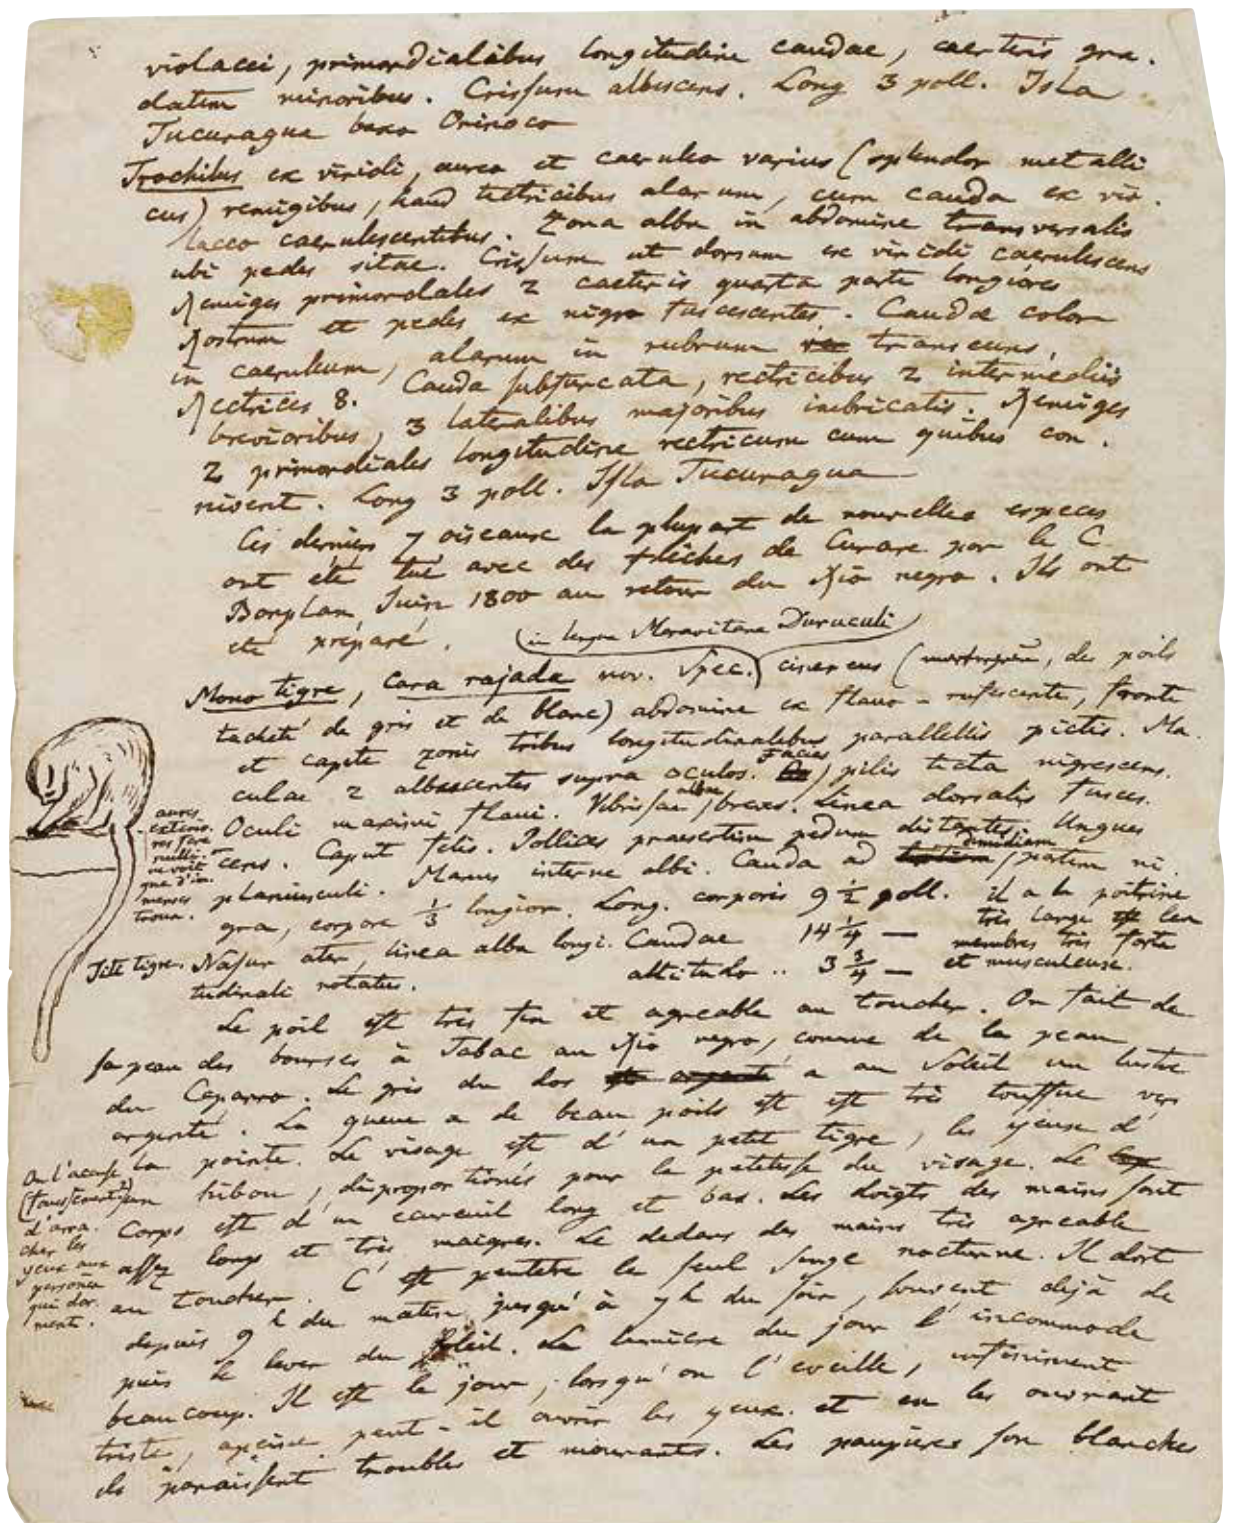 violacei, primordialibus longitudine caudae, caeteris gra.
datim minoribus. Crissum albescens. Long 3 poll. Isla
Tucuragua baxo Orinoco
Trochilus ex viridi, aureo et caeruleo varius (splendor metalli
cus) remigibus, haud tectricibus alarum, cum cauda ex vio.
laceo caerulescentibus. Zona alba in abdomine transversalis
ubi pedes sitae. Crissum ut dorsum ex viridi caerulescens
Remiges primordales 2 caeteris quarta parte longiores
Rostrum et pedes ex nigro fuscescentes. Caudae color
in caeruleum, alarum in rubrum transeuns.
Rectrices 8. Cauda subfurcata, rectricibus 2 intermediis
brevioribus, 3 lateralibus majoribus imbricatis. Remiges
2 primordiales longitudine rectricum cum quibus con.
nivent. Long 3 poll. Isla Tucuragua
Ces derniers 7 oiseaux la plupart de nouvelles especes
ont eté tué avec des fleches de Curare par le C
Bonplan, Juin 1800 au retour du Rio negro. Ils ont
eté preparé.
(in lengua Maravitana Duruculi
Mono tigre, Cara rajada nov. Spec.) cinereus (, des poils
tacheté de gris et de blanc) abdomine ex flavo-rufescente, fronte
et capite zonis tribus longitudinalibus parallelis pictis. Ma.
culae 2 albescentes supra oculos. Facies pilis tecta nigrescens.
Oculi maximi flavi. Vibrissae albae breves. Linea dorsalis fusces.
cens. Caput felis. Pollices praesertim pedum distantes. Ungues
planiusculi. Manus interne albi. Cauda ad dimidiam partem ni.
gra, corpore 1/3 longior. Long. corporis 9 1/2 poll.
Caudae 14 1/4 —
altitudo .. 3 3/4 —
il a la poitrine
très large et les
membres très forts
et musculeux.
aures
exterio.
res fere
nulli.
on voit
que d'im.
menses
trous.
Titi tigre. Nasus ater, linea alba longi.
tudinali notatus.
Le poil est très fin et agreable au toucher. On fait de
sa peau des bourses à Tabac au Rio negro, comme de la peau
du Caparro. Le gris du dos a au Soleil un lustre
argenté. La queue a de beau poils est est très touffue vers
la pointe. Le visage est d'un petit tigre, les yeux d'
un hibou, disproportionés pour la petitesse du visage. Le
Corps est d'un ecureuil long et bas. Les doigts des mains sont
assez longs et très maigres. Le dedans des mains très agreable
au toucher. C'est peutetre le seul Singe nocturne. Il dort
depuis 9 h du matin jusqu'à 7 h du soir, souvent dejà de
puis le lever du Soleil. La lumière du jour l'incommode
beaucoup. Il est le jour, lorsqu'on l'eveille, infiniment
triste, apeine peut-il ouvrir les yeux. et en les ouvrant
ils paraissent troubles et mourants. Les paupieres son blanches
On l'accuse
(faussement)
d'arra.
cher les
yeux aux
personn
qui dor.
ment.